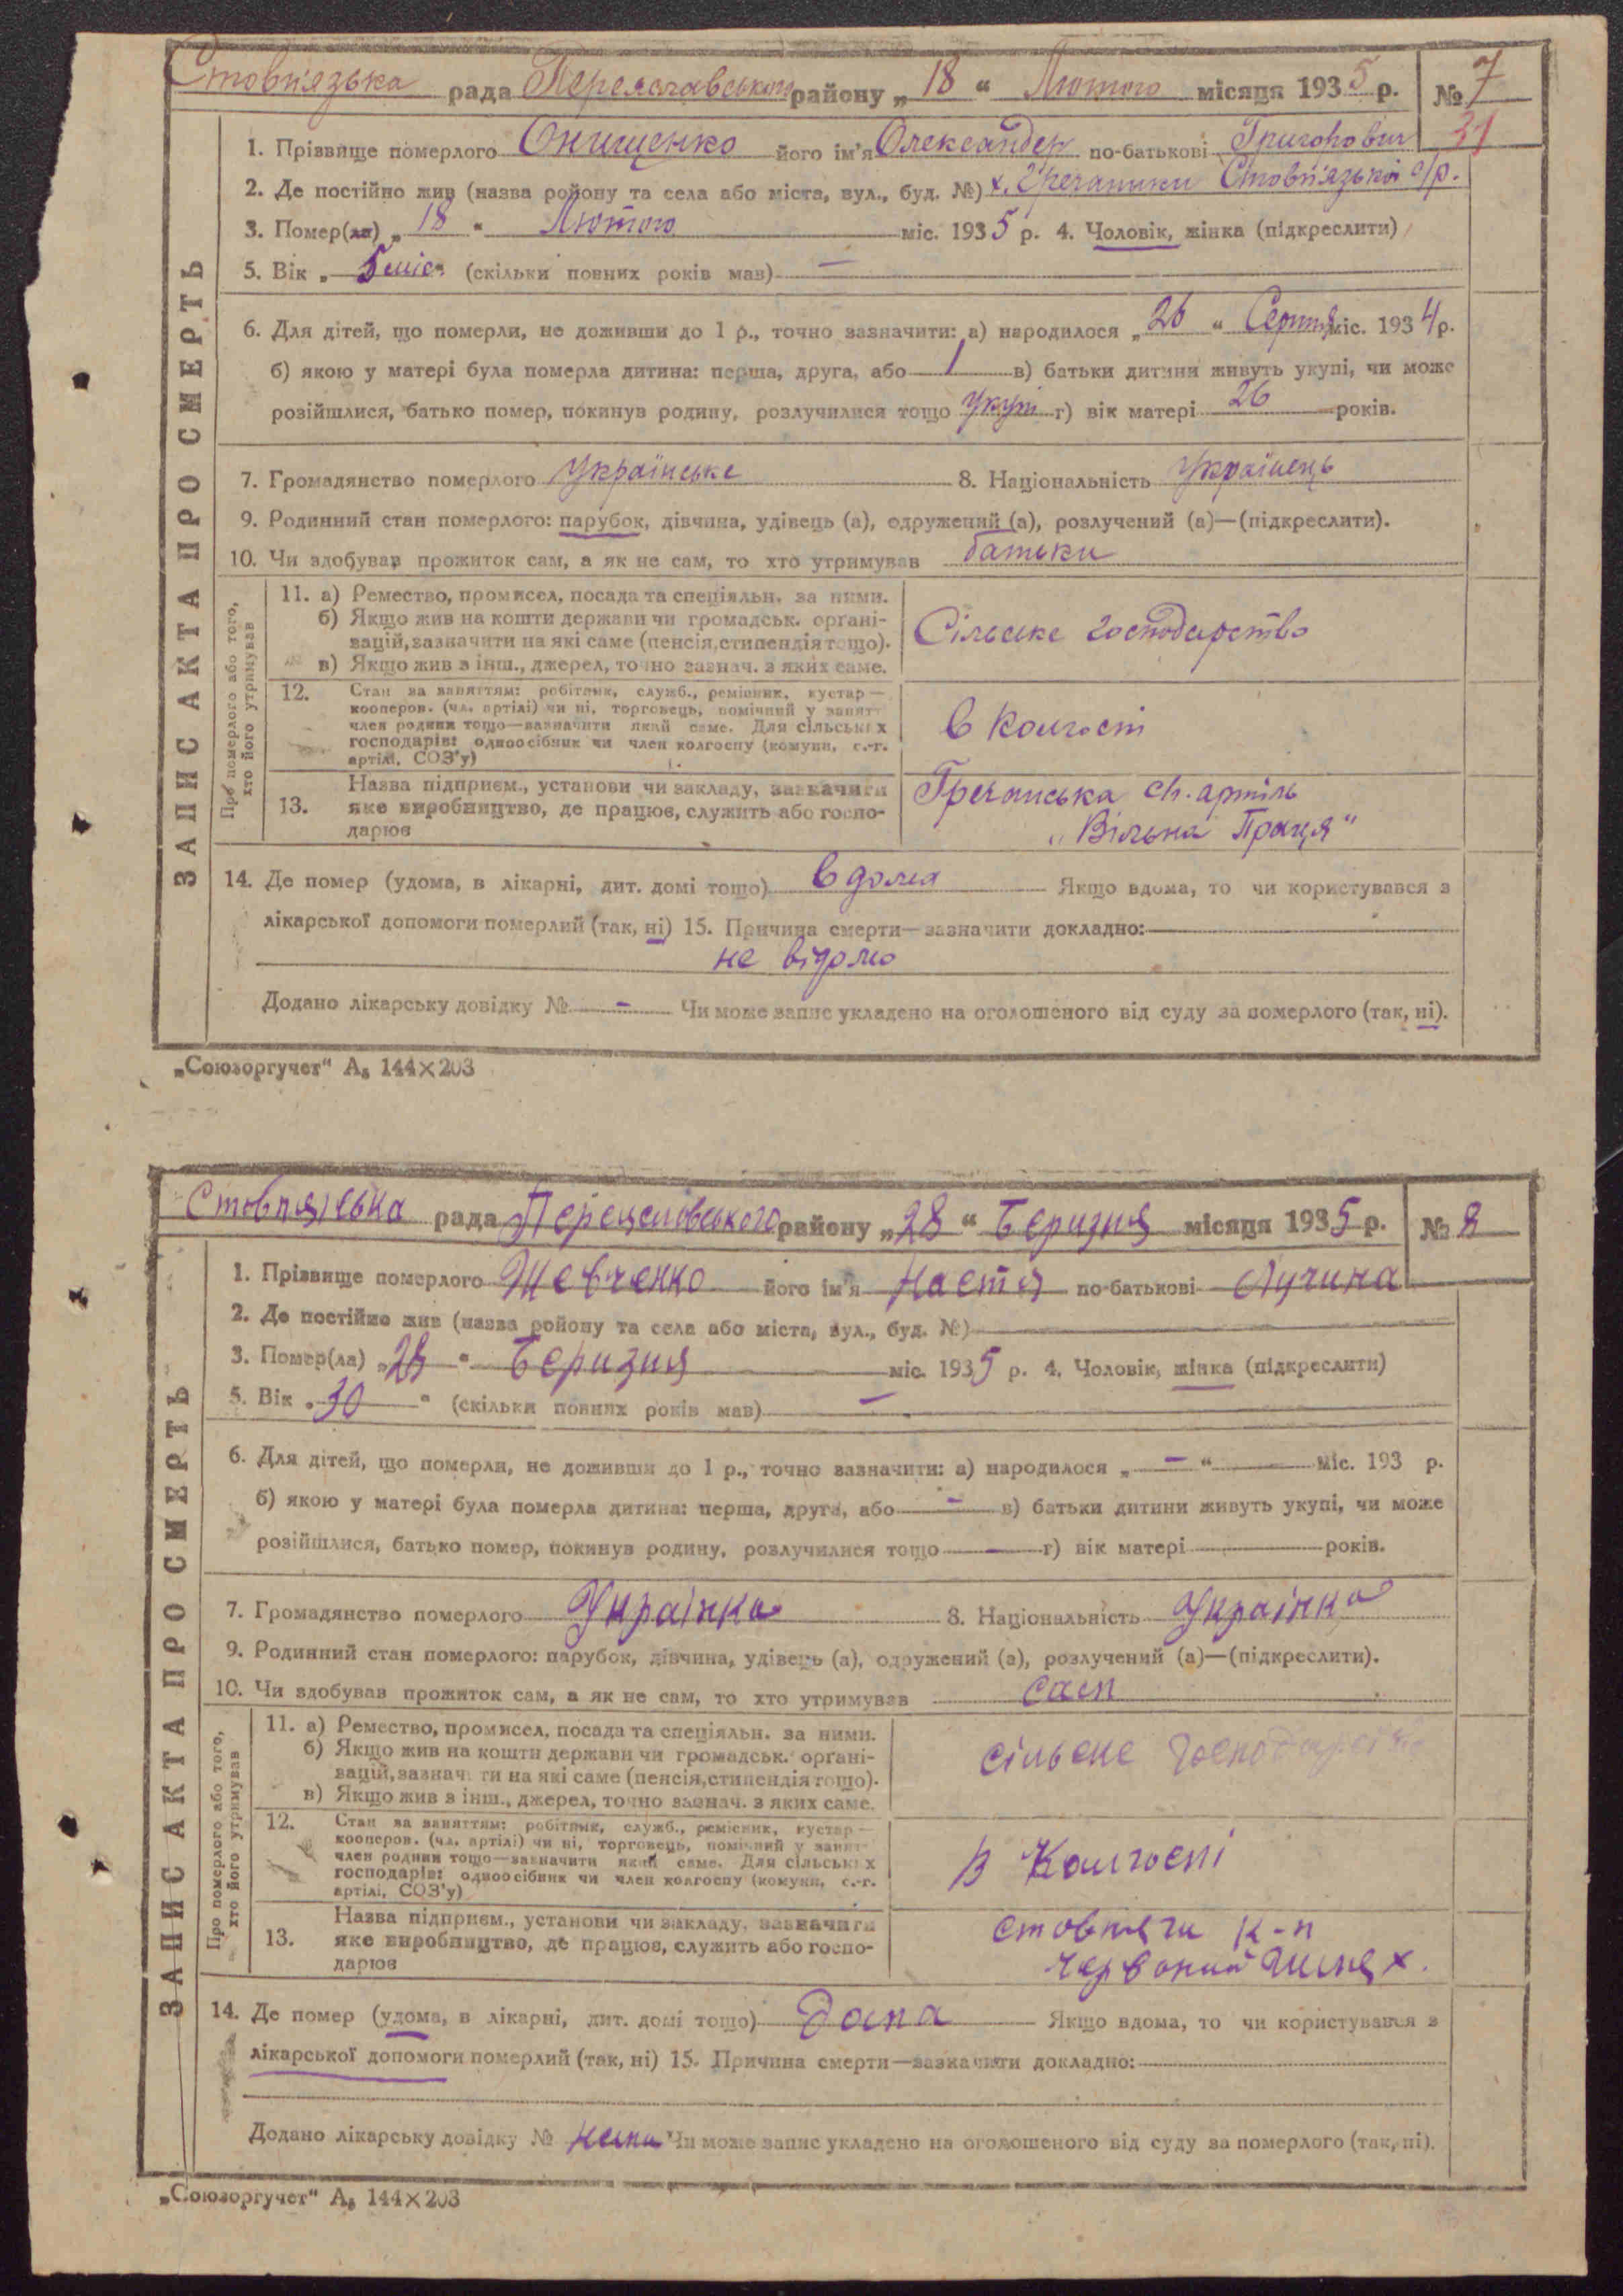 Стовп'язька рада Переяславського району „18“ Лютого місяця 1935 р. № 7
31
1. Прізвище померлого Онищенко його ім'я Олександер по-батькові Григорович
2. Де постійно жив (назва ройону та села або міста, вул., буд. №) х. Гречаники Стовп'язької с/р.
3. Помер(ла) „18“ Лютого міс. 1935 р. 4. Чоловік, жінка (підкреслити)
5. Вік „5 міс“ (скільки повних років мав) —
6. Для дітей, що померли, не доживши до 1 р., точно зазначити: а) народилося „26“ Серпня міс. 1934 р.
б) якою у матері була померла дитина: перша, друга, або 1 в) батьки дитини живуть укупі, чи може
розійшлися, батько помер, покинув родину, розлучилися тощо укупі г) вік матері 26 років.
7. Громадянство померлого Українське 8. Національність Українець
9. Родинний стан померлого: парубок, дівчина, удівець (а), одружений (а), розлучений (а)—(підкреслити).
10. Чи здобував прожиток сам, а як не сам, то хто утримував батьки
ЗАПИС АКТА ПРО СМЕРТЬ
Про померлого або того,
хто його утримував
11. а) Ремество, промисел, посада та спеціяльн. за ними.
б) Якщо жив на кошти держави чи громадськ. орґані-
зацій, зазначити на які саме (пенсія, стипендія тощо).
в) Якщо жив з інш., джерел, точно зазнач. з яких саме.
Сільське господарство
12. Стан за заняттям: робітник, служб., ремісник, кустар—
кооперов. (чл. артілі) чи ні, торговець, помічний у занятт
член родини тощо—зазначити який саме. Для сільських
господарів: одноосібник чи член колгоспу (комуни, с.-г.
артілі, СОЗ'у)
в колгоспі
13. Назва підприєм., установи чи закладу, зазначити
яке виробництво, де працює, служить або госпо-
дарює
Гречанська с/г. артіль
„Вільна Праця“
14. Де помер (удома, в лікарні, дит. домі тощо) вдома Якщо вдома, то чи користувався з
лікарської допомоги померлий (так, ні) 15. Причина смерти—зазначити докладно:
не відомо
Додано лікарську довідку № - Чи може запис укладено на оголошеного від суду за померлого (так, ні).
„Союзоргучет“ А₅ 144×203
Стовпязька рада Переяславського району „28“ Березня місяця 1935 р. № 8
1. Прізвище померлого Шевченко його ім'я Настя по-батькові
2. Де постійно жив (назва ройону та села або міста, вул., буд. №)
3. Помер(ла) „28“ Березня міс. 1935 р. 4. Чоловік, жінка (підкреслити)
5. Вік „30“ (скільки повних років мав) —
6. Для дітей, що померли, не доживши до 1 р., точно зазначити: а) народилося „-“ міс. 193 р.
б) якою у матері була померла дитина: перша, друга, або - в) батьки дитини живуть укупі, чи може
розійшлися, батько помер, покинув родину, розлучилися тощо - г) вік матері років.
7. Громадянство померлого Українка 8. Національність Українка
9. Родинний стан померлого: парубок, дівчина, удівець (а), одружений (а), розлучений (а)—(підкреслити).
10. Чи здобував прожиток сам, а як не сам, то хто утримував сам
ЗАПИС АКТА ПРО СМЕРТЬ
Про померлого або того,
хто його утримував
11. а) Ремество, промисел, посада та спеціяльн. за ними.
б) Якщо жив на кошти держави чи громадськ. орґані-
зацій, зазначити на які саме (пенсія, стипендія тощо).
в) Якщо жив з інш., джерел, точно зазнач. з яких саме.
сільське господарство
12. Стан за заняттям: робітник, служб., ремісник, кустар—
кооперов. (чл. артілі) чи ні, торговець, помічний у занятт
член родини тощо—зазначити який саме. Для сільських
господарів: одноосібник чи член колгоспу (комуни, с.-г.
артілі, СОЗ'у)
В Колгоспі
13. Назва підприєм., установи чи закладу, зазначити
яке виробництво, де працює, служить або госпо-
дарює
стовпяги к-п
червоний шлях.
14. Де помер (удома, в лікарні, дит. домі тощо) дома Якщо вдома, то чи користувався з
лікарської допомоги померлий (так, ні) 15. Причина смерти—зазначити докладно:
Додано лікарську довідку № нема Чи може запис укладено на оголошеного від суду за померлого (так, ні).
„Союзоргучет“ А₅ 144×203